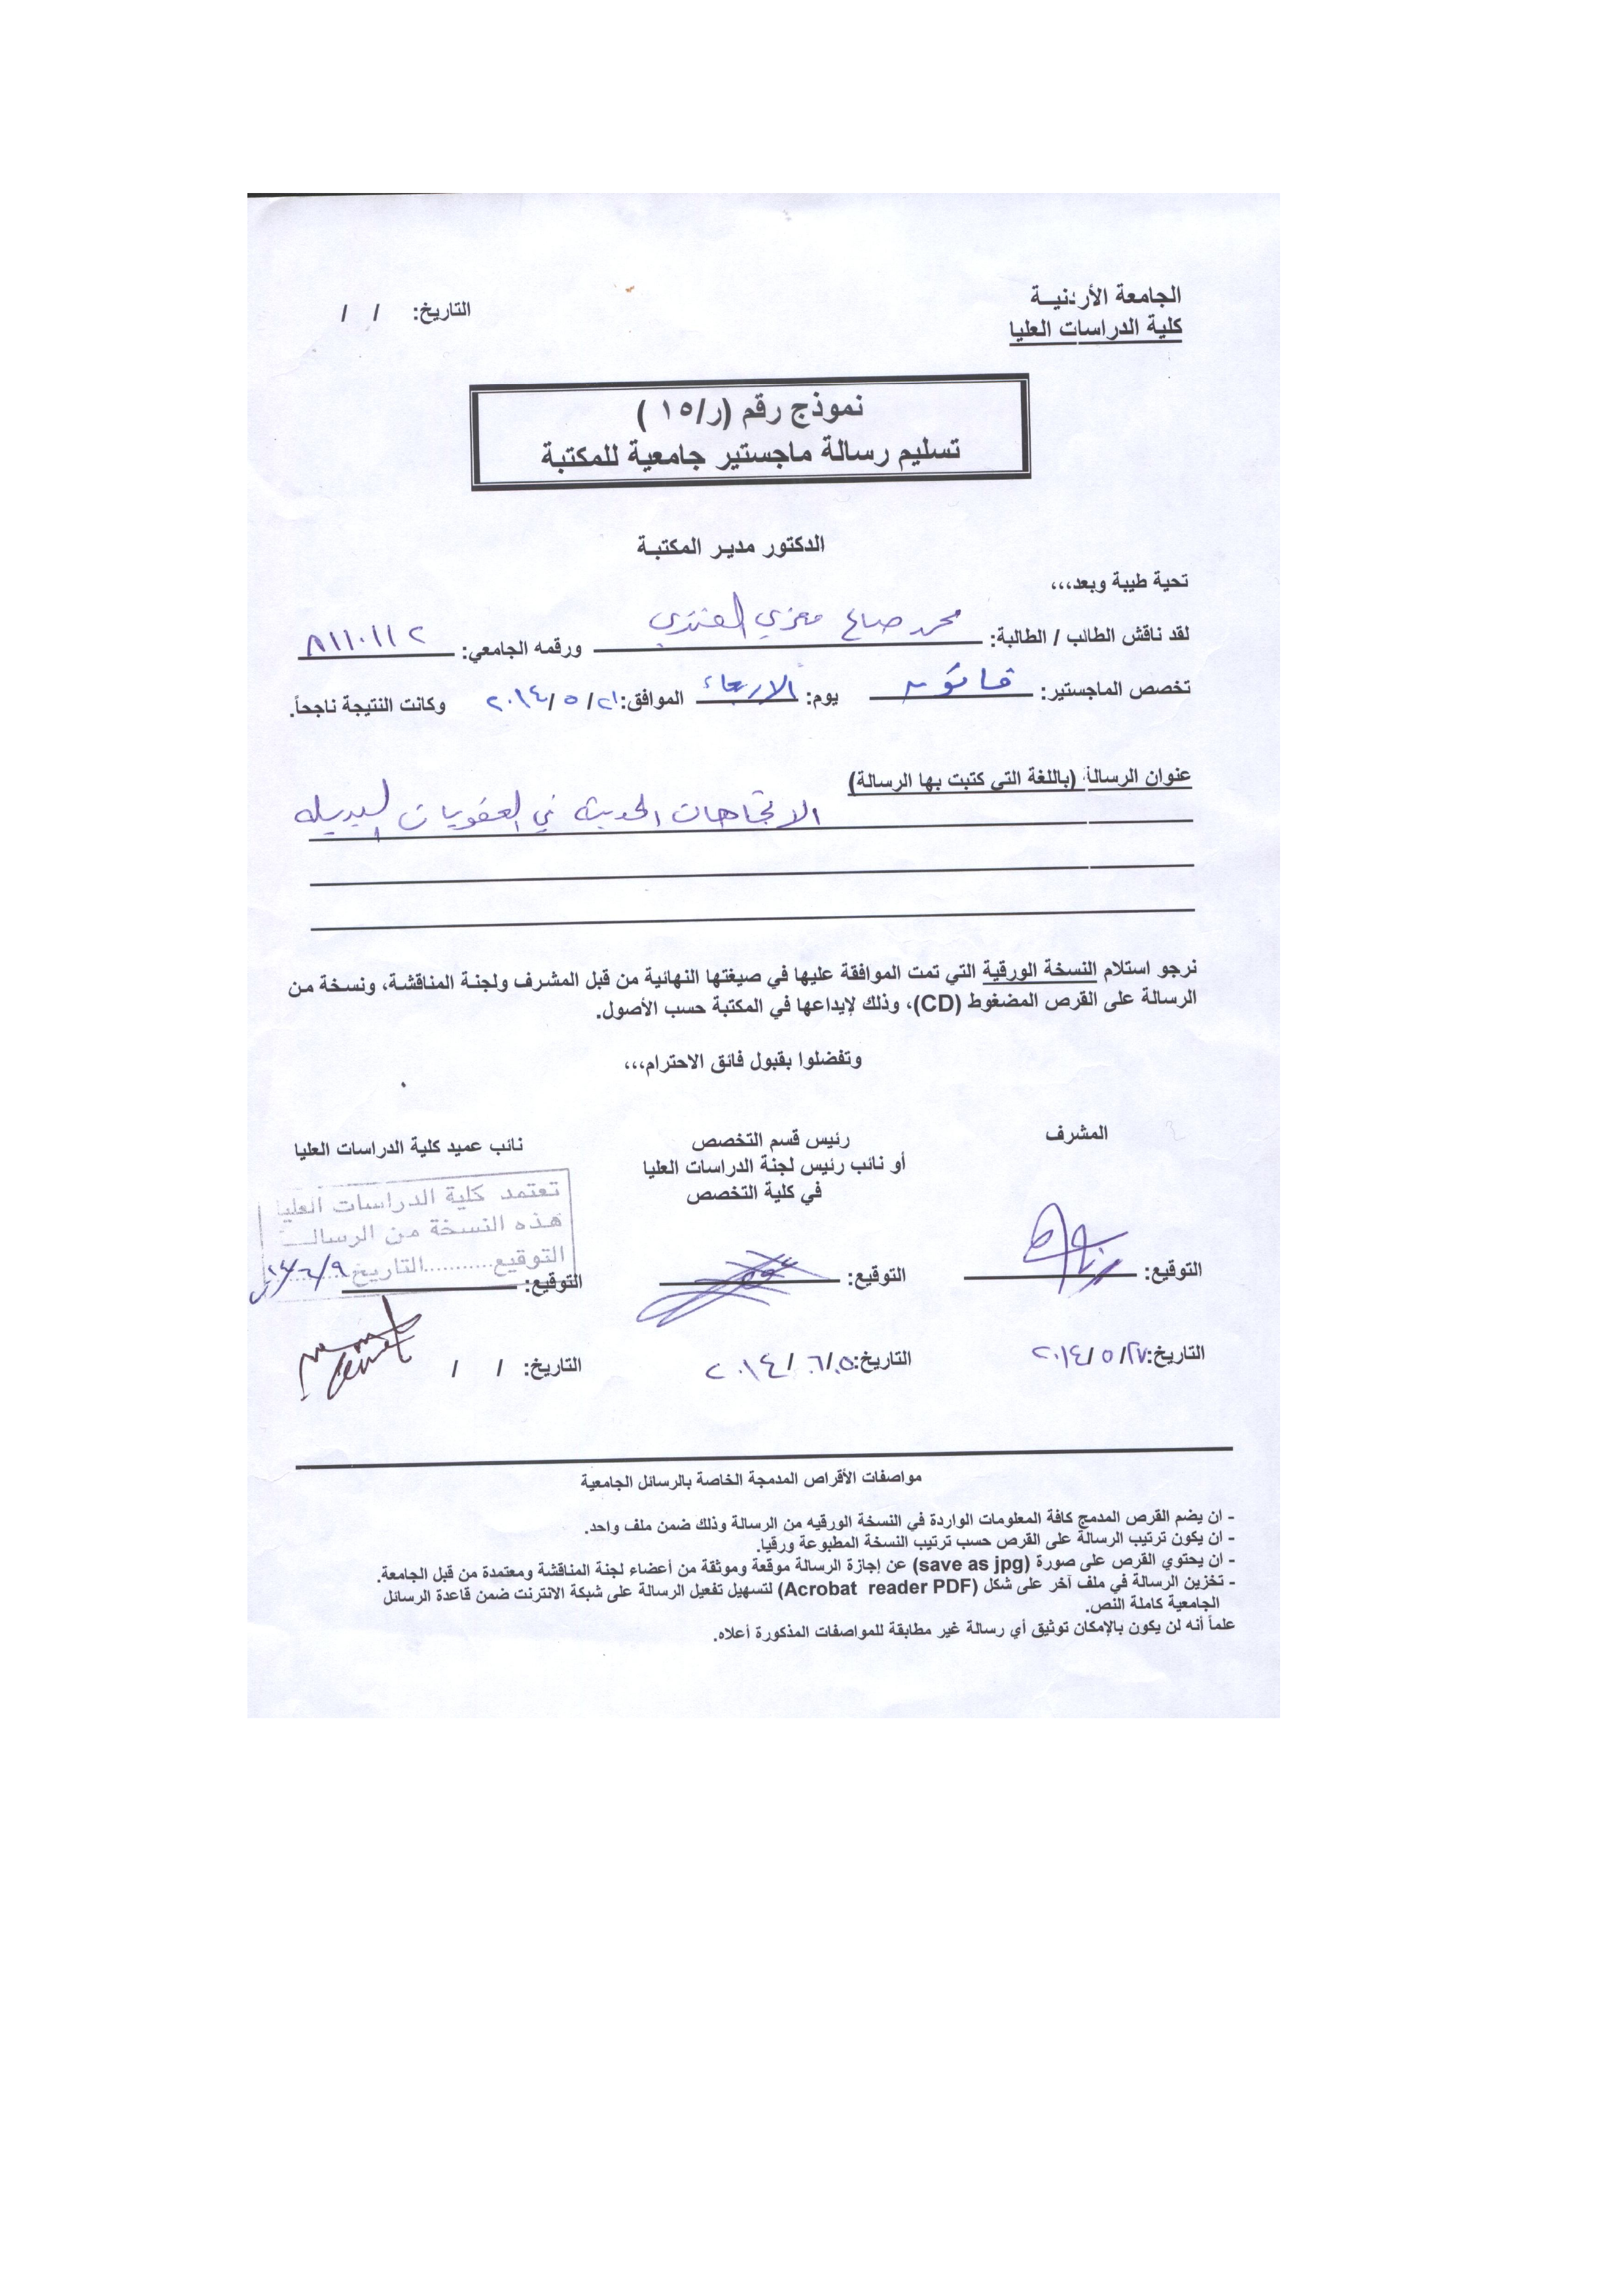 الجامعة الأردنيـة
كلية الدراسات العليا
التاريخ: / /
نموذج رقم (ر/١٥)
تسليم رسالة ماجستير جامعية للمكتبة
الدكتور مدير المكتبـة
تحية طيبة وبعد،،،
لقد ناقش الطالب / الطالبة: محمد صالح العنزي ورقمه الجامعي: ٨١١٠١١٢
تخصص الماجستير: قانون يوم: الاربعاء الموافق: ٢١/ ٥ /٢٠١٤ وكانت النتيجة ناجحاً.
عنوان الرسالة (باللغة التي كتبت بها الرسالة)
الاتجاهات الحديثة في العقوبات البديله
نرجو استلام النسخة الورقية التي تمت الموافقة عليها في صيغتها النهائية من قبل المشرف ولجنة المناقشة، ونسخة من
الرسالة على القرص المضغوط (CD)، وذلك لإيداعها في المكتبة حسب الأصول.
وتفضلوا بقبول فائق الاحترام،،،
المشرف
رئيس قسم التخصص
أو نائب رئيس لجنة الدراسات العليا
في كلية التخصص
نائب عميد كلية الدراسات العليا
تعتمد كلية الدراسات العليا
هذه النسخة من الرسالـــة
التوقيع...........التاريخ ٩/٦/١٤
التوقيع: التوقيع: التوقيع:
التاريخ: ٢٧/ ٥ /٢٠١٤ التاريخ: ٥/ ٦ /٢٠١٤ التاريخ: / /
مواصفات الأقراص المدمجة الخاصة بالرسائل الجامعية
- ان يضم القرص المدمج كافة المعلومات الواردة في النسخة الورقيه من الرسالة وذلك ضمن ملف واحد.
- ان يكون ترتيب الرسالة على القرص حسب ترتيب النسخة المطبوعة ورقيا.
- ان يحتوي القرص على صورة (save as jpg) عن إجازة الرسالة موقعة وموثقة من أعضاء لجنة المناقشة ومعتمدة من قبل الجامعة.
- تخزين الرسالة في ملف آخر على شكل (Acrobat reader PDF) لتسهيل تفعيل الرسالة على شبكة الانترنت ضمن قاعدة الرسائل
الجامعية كاملة النص.
علماً أنه لن يكون بالإمكان توثيق أي رسالة غير مطابقة للمواصفات المذكورة أعلاه.